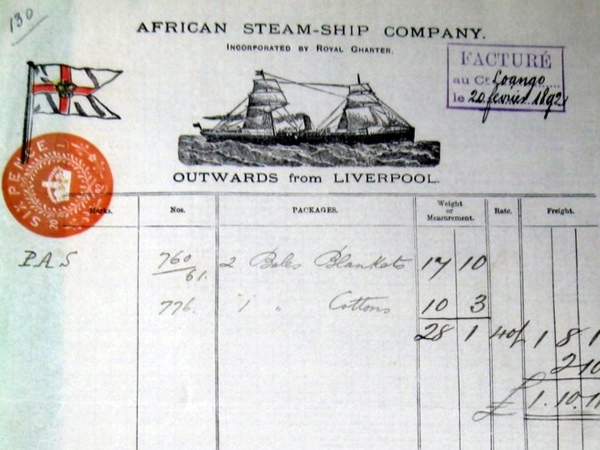 130
AFRICAN STEAM-SHIP COMPANY.
INCORPORATED BY ROYAL CHARTER.
FACTURÉ
au Ct Loango
le 20 février 1892
SIX PENCE
OUTWARDS from LIVERPOOL.
Marks. Nos. PACKAGES. Weight or Measurement. Rate. Freight.
PAS 760/61. 2 Bales Blankets 17 10
776. 1 " Cottons 10 3
28 1 40/ 1 8 1
2 10
£ 1.10.11